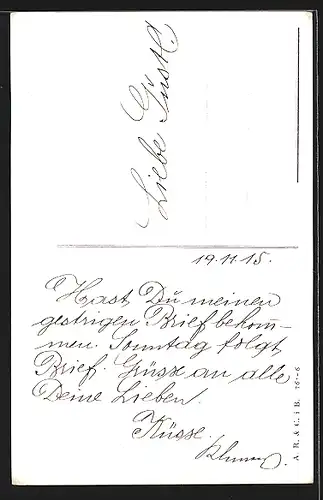 Liebe Gustl.
19.11.15.
Hast Du meinen
gestrigen Brief bekom̄-
men. Sonntag folgt
Brief. Grüsse an alle
Deine Lieben.
Küsse.
A. R. & C. i B.